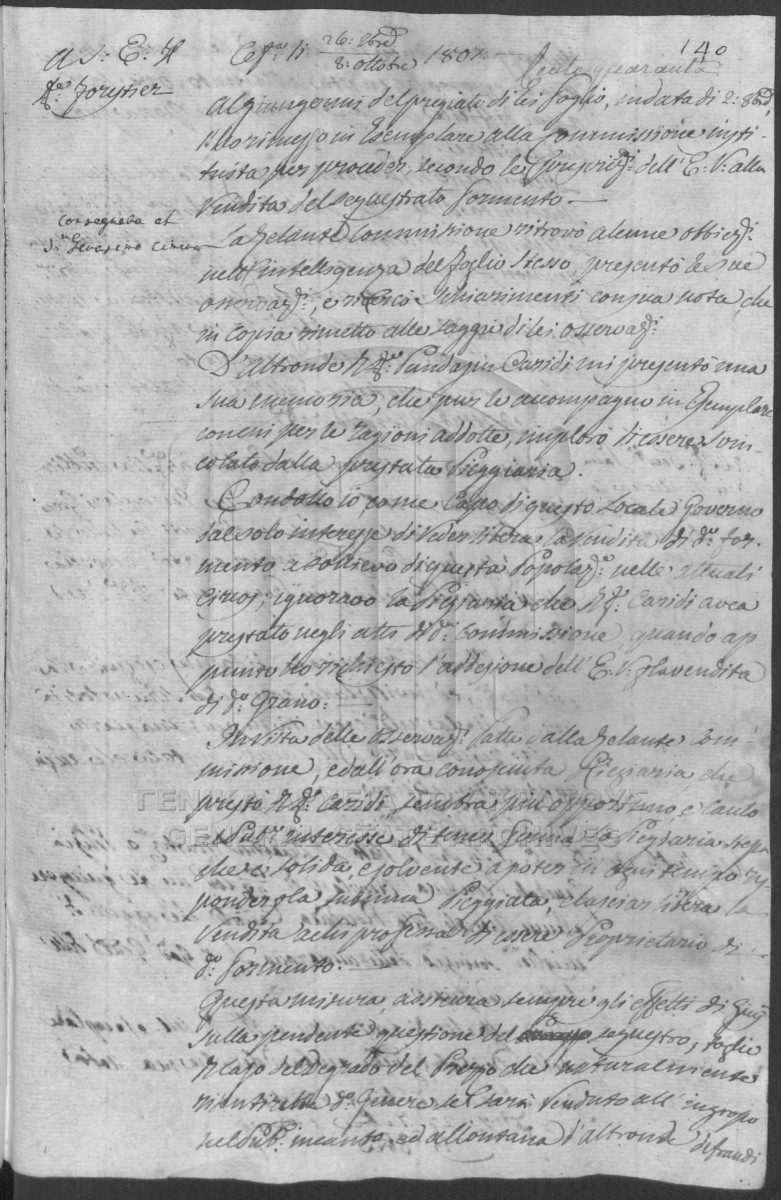 140
A S: E: Il
Forestier
Cef.ª li 26: 7brẽ / 8: ottobre 1807
Centoquaranta
Al giungermi del pregiato di lei foglio, in data di 2: 8brẽ,
l'ho rimesso in Esemplare alla Commissione insti-
tuita per proceder, secondo le dell' E: V: alla
Vendita del sequestrato formento. —
Consegnata et
La zelante Commissione ritrovò alcune obbiez.ⁱ
nell' intelligenza del foglio stesso, presentò le sue
osservaz.ⁱ, e ricercò schiarimenti con sua nota, che
in copia rimetto alle saggie di lei osservaz.ⁱ
D'altronde Caridi mi presentò una
sua memoria, che pur le accompagno in Esemplare
con cui per le ragioni addotte, implorò di essere svin-
colato dalla prestata Pieggiaria.
Condotto io, come Capo di questo Locale Governo
dal solo interesse di veder libera la vendita di d.º for-
mento a sollievo di questa Popolaz.ᵉ nelle attuali
circos; ignoravo la Pieggiaria che Caridi avea
prestato negli atti di d.ª Commissione, quando ap-
punto ho richiesto l'addesione dell' E: V: p la vendita
di d.º Grano:
In vista delle osservaz.ⁱ fatte dalla zelante Com-
missione, e dall' ora conosciuta Pieggiaria, che
prestò Caridi, sembra più opportuno, e cauto
interesse di tener ferma la Pieggiaria stessa
che è solida, e solvente a poter in ogni tempo ris-
ponder p la summa Pieggiata, e lasciar libera la
Vendita a chi professa di essere Proprietario di
d.º formento:
Questa misura, assicura sempre gli effetti di
sulla pendente questione del sequestro, toglie
il caso del degrado del Prezzo che naturalmente
risentirebbe d.º Genere se sarà venduto all' ingrosso
nel Pub.º incanto, ed allontana d'altronde defraudi
ΓΕΝΙΚΑ ΑΡΧΕΙΑ ΤΟΥ ΚΡΑΤΟΥΣ
GENERAL STATE ARCHIVES